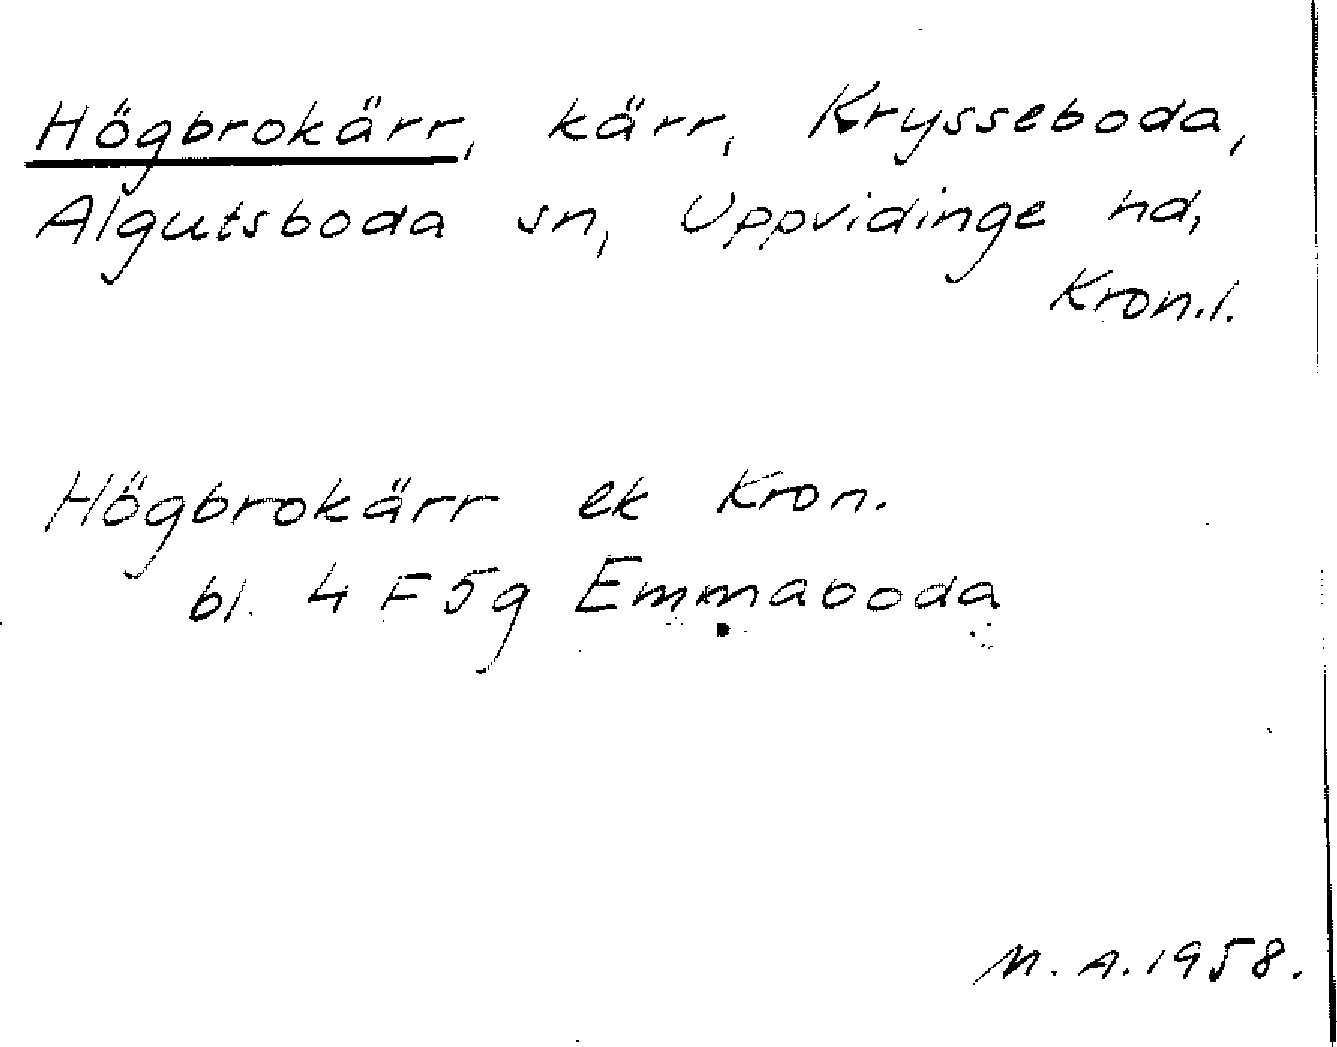 Högbrokärr, kärr, Krysseboda,
Algutsboda sn, Uppvidinge hd,
Kron.l.
Högbrokärr ek Kron.
bl. 4 F 5g Emmaboda
M.A.1958.